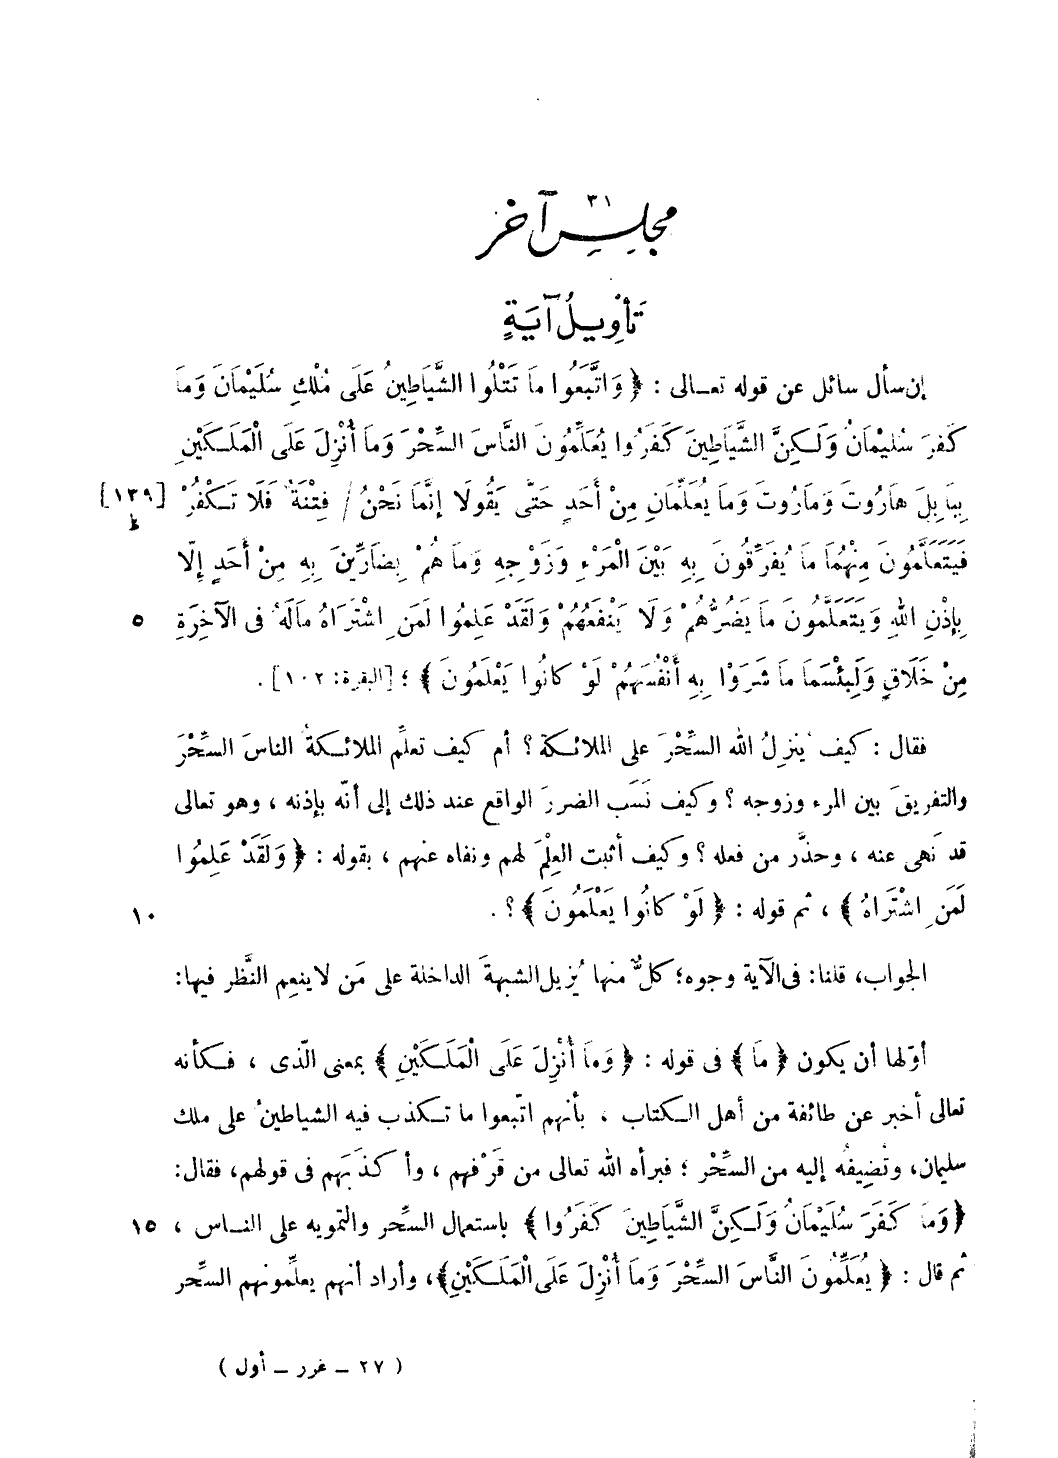 ٣١
مجلس آخر
تَأْوِيلُ آيَةٍ
إن سأل سائل عن قوله تعـالى : ﴿ وَاتَّبَعُوا مَا تَتْلُوا الشَّيَاطِينُ عَلَى مُلْكِ سُلَيْمَانَ وَمَا
كَفَرَ سُلَيْمَانُ وَلَـكِنَّ الشَّيَاطِينَ كَفَرُوا يُعَلِّمُونَ النَّاسَ السِّحْرَ وَمَا أُنْزِلَ عَلَى الْمَلَـكَيْنِ
بِبَابِلَ هَارُوتَ وَمَارُوتَ وَمَا يُعَلِّمَانِ مِنْ أَحَدٍ حَتَّى يَقُولَا إِنَّمَا نَحْنُ / فِتْنَةٌ فَلَا تَـكْفُرْ [١٣٩ ظ]
فَيَتَعَلَّمُونَ مِنْهُمَا مَا يُفَرِّقُونَ بِهِ بَيْنَ الْمَرْءِ وَزَوْجِهِ وَمَا هُمْ بِضَارِّينَ بِهِ مِنْ أَحَدٍ إِلَّا
بِإِذْنِ اللهِ وَيَتَعَلَّمُونَ مَا يَضُرُّهُمْ وَلَا يَنْفَعُهُمْ وَلَقَدْ عَلِمُوا لَمَنِ اشْتَرَاهُ مَالَهُ فى الآخِرَةِ ٥
مِنْ خَلَاقٍ وَلَبِئْسَمَا مَا شَرَوْا بِهِ أَنْفُسَهُمْ لَوْ كانُوا يَعْلَمُونَ ﴾ ؛ [البقرة: ١٠٢] .
فقال : كيف يُنزِلُ الله السِّحْرَ على الملائـكة ؟ أم كيف تعلِّم الملائـكةُ الناسَ السِّحْرَ
والتفريقَ بين المرء وزوجه ؟ وكيف نَسَب الضررَ الواقع عند ذلك إلى أنّه بإذنه ، وهو تعالى
قد نَهى عنه ، وحذَّر من فعله ؟ وكيف أثبت العِلْمَ لهم ونفاه عنهم ، بقوله : ﴿ وَلَقَدْ عَلِمُوا
لَمَنِ اشْتَرَاهُ ﴾ ، ثم قوله : ﴿ لَوْ كانُوا يَعْلَمُونَ ﴾ ؟ . ١٠
الجواب، قلنا: فى الآية وجوه؛ كلٌّ منها يُزيل الشبهةَ الداخلة على مَن لا ينعِم النَّظر فيها:
أوّلها أن يكون ﴿ مَا ﴾ فى قوله : ﴿ وَمَا أُنْزِلَ عَلَى الْمَلَـكَيْنِ ﴾ بمعنى الّذى ، فـكأنه
تعالى أخبر عن طائفة من أهل الـكتاب ، بأنهم اتّبعوا ما تـكذب فيه الشياطينُ على ملك
سليمان، وتُضِيفُه إليه من السِّحْر ؛ فبرأه الله تعالى من قَرْفهم ، وأكذَبَهم فى قولهم، فقال:
﴿ وَمَا كَفَرَ سُلَيْمَانُ وَلَـكِنَّ الشَّيَاطِينَ كَفَرُوا ﴾ باستعمال السِّحر والتمويه على النـاس ، ١٥
ثم قال : ﴿ يُعَلِّمُونَ النَّاسَ السِّحْرَ وَمَا أُنْزِلَ عَلَى الْمَلَـكَيْنِ ﴾، وأراد أنهم يعلِّمونهم السِّحر
( ٢٧ ـ غرر ـ أول )